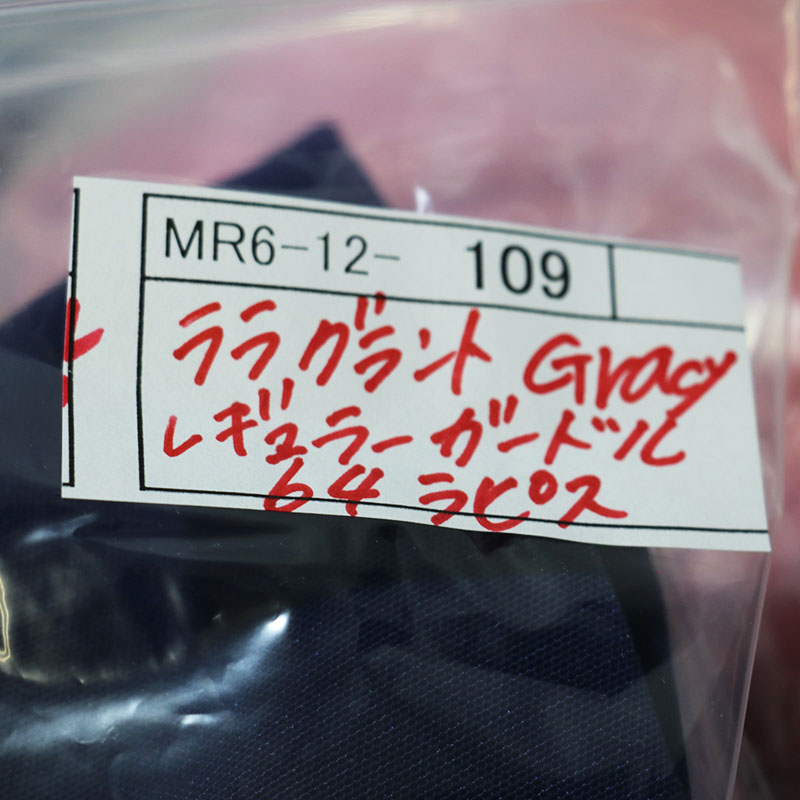 MR6-12- 109
ララグラント Gracy
レギュラーガードル
64 ラピス